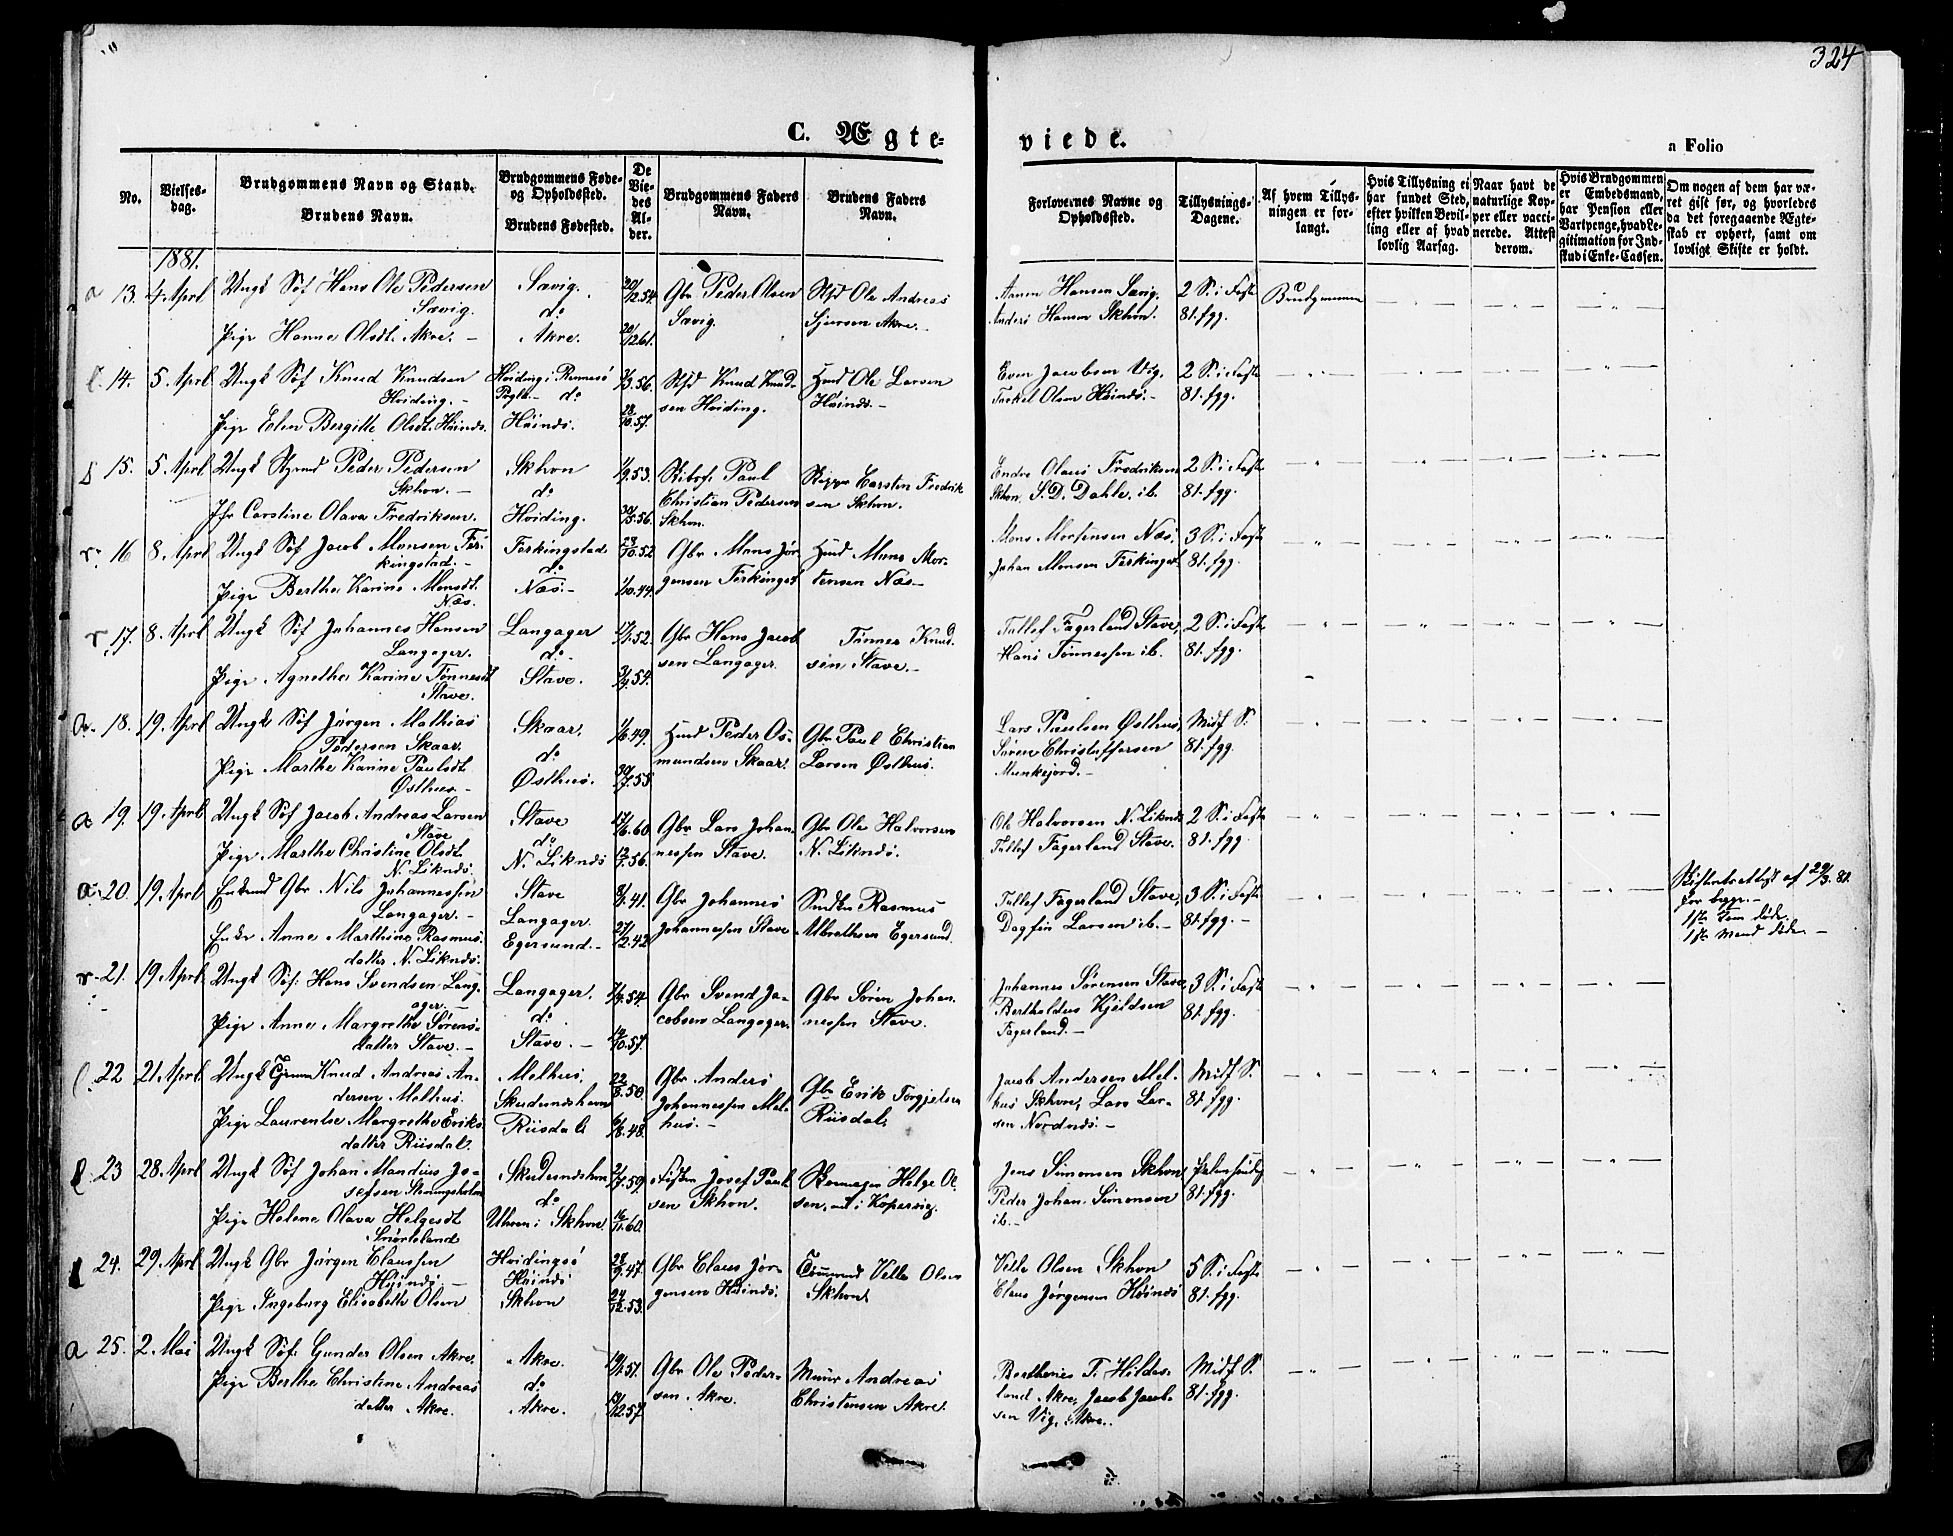 324
C. Ægte-
viede.
a Folio
No.
Vielses-
dag.
Brudgommens Navn og Stand.
Brudens Navn.
Brudgommens Føde-
og Opholdssted.
Brudens Fødested.
De
Vie-
des
Al-
der.
Brudgommens Faders
Navn.
Brudens Faders
Navn.
Forlovernes Navne og
Opholdssted.
Tillysnings-
Dagene.
Af hvem Tillys-
ningen er for-
langt.
Hvis Tillysning ei
har fundet Sted,
efter hvilken Bevil-
ling eller af hvad
lovlig Aarsag.
Naar havt de
naturlige Kop-
per eller vacci-
nerede. Attest
derom.
Hvis Brudgommen
er Embedsmand,
har Pension eller
Vartpenge, hvad Le-
gitimation for Ind-
skud i Enke-Cassen.
Om nogen af dem har væ-
ret gift før, og hvorledes
da det foregaaende Ægte-
skab er ophørt, samt om
lovligt Skifte er holdt.
1881.
a 13. 4 April Ungk Søf Hans Ole Pedersen
Sævig.
Pige Hanne Olsdt. Akre.
Sævig.
do
Akre.
20/12.54
20/12.61.
Gbr Peder Olsen
Sævig.
Ole Andreas
Sjursen Akre.
Hansen Sævig.
Anders Hansen Skhvn.
2 S. i Faste
81. fgg.
Brudgommen
14. 5 April Ungk Søf Knud Knudsen
Hviding.
Pige Elen Bergitte Olsdt. Høinds.
Hviding i Rennesö
do
Høinds.
3.56.
28/10.57.
Knud Knud-
sen Hviding.
Huusmd Ole Larsen
Høinds.
Even Jacobsen Vig,
Torkel Olsen Høinds.
2 S. i Faste
81. fgg.
15. 5 April Ungk Styrmd Peder Pedersen
Skhvn.
Jfr Carstine Olava Fredriksen.
Skhvn
do
Hviding.
9.53.
5.56.
Skibsf. Paul
Christian Pedersen
Skhvn.
Skipper Carsten Fredrik-
sen Skhvn.
Endre Olaus Fredriksen
Skhvn, S. D. Dahle ib.
2 S. i Faste
81. fgg.
r. 16 8 April Ungk Søf Jacob Monsen Fer-
kingstad.
Pige Berthe Karine Monsdt.
Næs.
Ferkingstad
do
Næs.
10.52
10.44.
Gbr Mons Jør-
gensen Ferkingst
Mons Mor-
tensen Næs
Mons Mortensen Næs,
Johan Monsen Ferkingst
3 S. i Faste
81. fgg.
r. 17. 8 April Ungk Søf Johannes Hansen
Langager.
Pige Agnethe Karine Tønnesdt
Stave.
Langager
do
Stave.
52.
54.
Gbr Hans Jacob-
sen Langager.
Tønnes Knud-
sen Stave.
Tollef Fagerland Stave,
Hans Tønnessen ib.
2 S. i Faste
81. fgg.
a. 18. 19. April Ungk Søf Jørgen Mathias
Pedersen Skaar.
Pige Marthe Karine Paulsdt
Østhus.
Skaar.
do
Østhus.
1/6.49.
30/7.55
Peder Os-
mundsen Skaar.
Gbr Paul Christian
Larsen Østhus.
Lars Paulsen Østhus,
Søren Christoffersen
Munkejord.
Midf. S.
81. fgg.
a 19. 19. April Ungk Søf Jacob Andreas Larsen
Stave
Pige Marthe Christine Olsdt.
N. Liknds.
Stave
do
N. Liknds
6.60
56.
Gbr Lars Johan-
nessen Stave.
Gbr Ole Halvorsen
N. Liknds.
Ole Halvorsen N. Liknds
Tollef Fagerland Stave.
2 S. i Faste
81. fgg.
a. 20. 19. April Enkemd Gbr Nils Johannessen
Langager.
Enke Anne Marthine Rasmus-
datter N. Liknds.
Stave
Langager.
Egersund.
41.
27/2.42
Gbr Johannes
Johannessen Stave
Rasmus
Albrethsen Egersund.
Tollef Fagerland Stave,
Dagfin Larsen ib.
3 S. i Faste
81. fgg.
Skifteratt. af 29/3. 81.
for begge.
1ste Kone døde.
1ste Mand døde
r. 21. 19. April Ungk Søf. Hans Svendsen Lang-
ager.
Pige Anne Margrethe Sørens-
datter Stave.
Langager.
do
Stave.
54.
10.57.
Gbr Svend Ja-
cobsen Langager.
Gbr Søren Johan-
nessen Stave.
Johannes Sørensen Stave,
Bertholdus Kjeldsen
Fagerland.
3 S. i Faste
81. fgg.
22 21. April Ungk Knud Andreas An-
dersen Melhus.
Pige Laurentse Margrethe Eriks-
datter Riisdal.
Melhus.
Skudesneshavn
Riisdal
22/8.50.
8.48.
Gbr Anders
Johannessen Mel-
hus.
Gbr Erik Torgjelsen
Riisdal.
Jacob Andersen Mel-
hus Skhvn, Lars Lar-
sen Nordnds.
Midf S.
81. fgg.
23 28. April Ungk Søf Johan Mandius Jo-
sefsen
Pige Helene Olava Helgesdt
Skudesneshavn
do
i Skhvn.
59.
16/11.60.
Josef Paul-
sen Skhvn.
Helge Ol-
sen, i Kopervig.
Jens Simonsen Skhvn,
Peder Johan Simonsen
ib.
Palmesøndg
81. fgg.
24. 29. April Ungk Gbr Jørgen Claussen
Høinds
Pige Ingeborg Elisabeth Olsen
Hvidingsö
Høinds
Skhvn
28/9.47.
24/12.53.
Gbr Claus Jør-
gensen Høinds.
Velle Olsen
Skhvn.
Velle Olsen Skhvn
Claus Jørgensen Høinds
5 S. i Faste
81. fgg.
a 25. 2. Mai Ungk Søf. Gunder Olsen Akre.
Pige Berthe Christine Andreas-
datter Akre.
Akre.
do
Akre.
51.
12.57
Gbr Ole Peder-
sen Akre.
Murer Andreas
Christensen Akre.
Berthenes T. Hildes-
land Akre, Jacob Jacob-
sen Vig, Akre.
Midf S.
81. fgg.